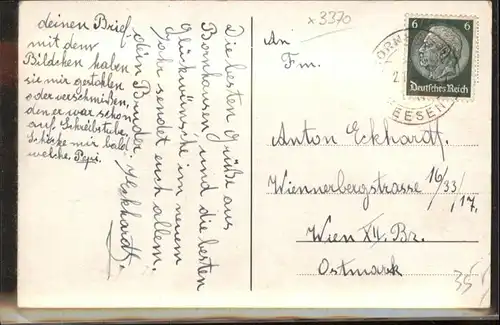 deinen Brief
mit dem
Bildchen haben
sie mir gestohlen
oder verschmißen,
den er war schon
auf Schreibstube.
Schicke mir bald
welche. Pepi.
Die besten Grüße aus
Bornhausen und die besten
Glückwünsche im neuem
Jahr sendet euch allem.
dein Bruder.
Eckhardt.
x 3370
6 6
Deutsches Reich
SEESEN
An
Fm.
Anton Eckhardt.
Wiennerbergstrasse 16/33/17.
Wien XII. Bz.
Ostmark
35